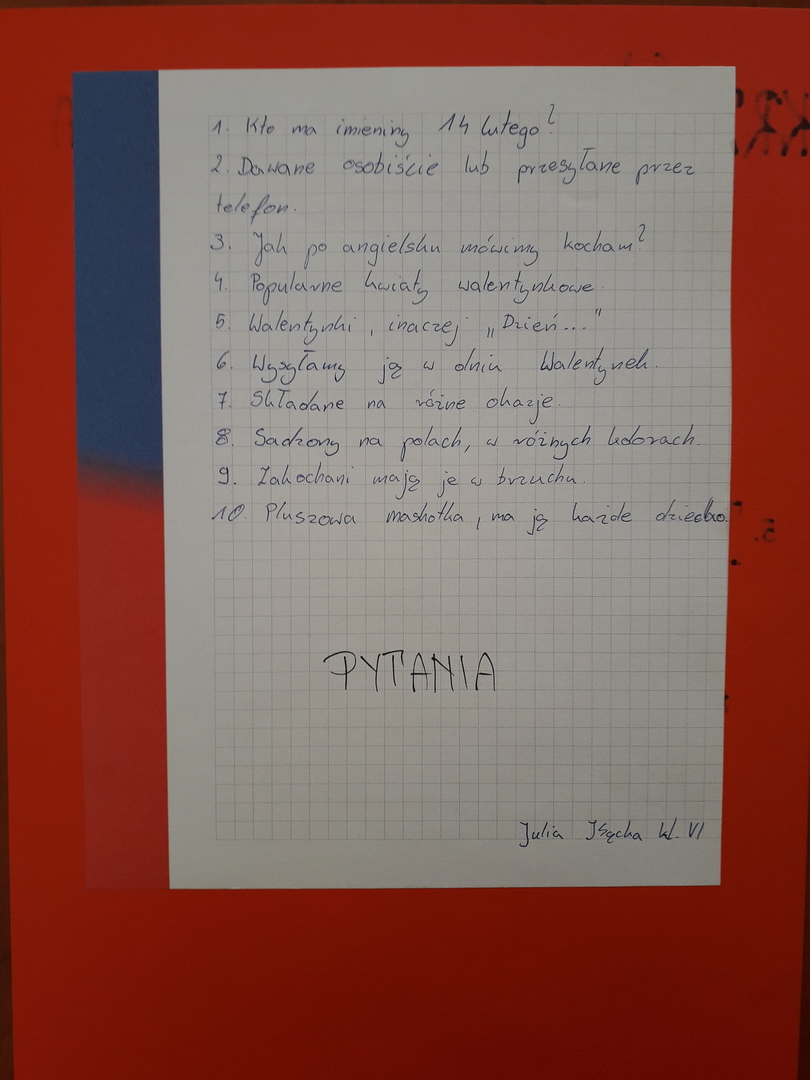 1. Kto ma imieniny 14 lutego?
2. Dawane osobiście lub przesyłane przez
telefon.
3. Jak po angielsku mówimy kocham?
4. Popularne kwiaty walentynkowe.
5. Walentynki, inaczej „Dzień..."
6. Wysyłamy ją w dniu Walentynek.
7. Składane na różne okazje.
8. Sadzony na polach, w różnych kolorach.
9. Zakochani mają je w brzuchu.
10. Pluszowa maskotka, ma ją każde dziecko.
PYTANIA
Julia kl. VI
5.